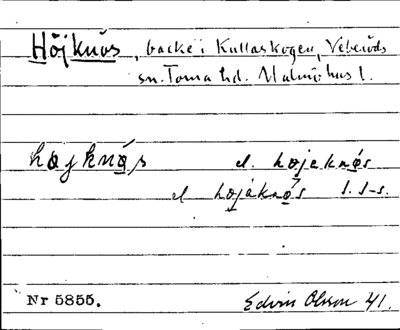 Höjknös, backe i Kullaskogen, Veberöds
sn. Torna hd. Malmöhus l.
højknøs el. højaknøs
el højáknøs s. s-s.
Nr 5855.
Edvin Olsson 41.